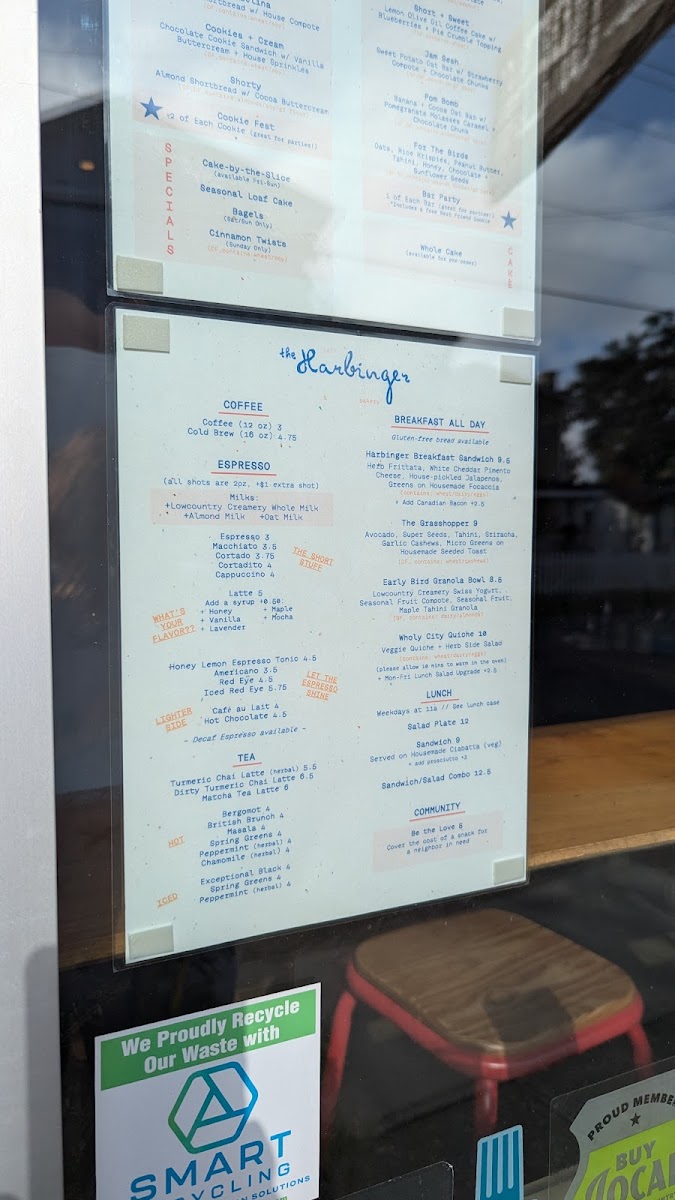 Shortbread w/ House Compote
Cookies + Cream
Chocolate Cookie Sandwich w/ Vanilla
Buttercream + House Sprinkles
Shorty
Almond Shortbread w/ Cocoa Buttercream
Cookie Fest
of Each Cookie (great for parties!)
SPECIALS
Cake-by-the-Slice
(available Fri-Sun)
Seasonal Loaf Cake
Bagels
(Sat/Sun Only)
Cinnamon Twists
(Sunday Only)
Short + Sweet
Lemon Olive Oil Coffee Cake w/
Blueberries + Pie Crumble Topping
Jam Sesh
Sweet Potato Oat Bar w/ Strawberry
Compote + Chocolate Chunks
Pom Bomb
Banana + Cocoa Oat Bar w/
Pomegranate Molasses Caramel +
Chocolate Chunk
For The Birds
Oats, Rice Krispies, Peanut Butter,
Tahini, Honey, Chocolate +
Sunflower Seeds
Bar Party
1 of Each Bar (great for parties!)
Whole Cake
CAKE
the Harbinger
bakery
COFFEE
Coffee (12 oz) 3
Cold Brew (16 oz) 4.75
ESPRESSO
(all shots are 2oz, +$1 extra shot)
Milks:
+Lowcountry Creamery Whole Milk
+Almond Milk +Oat Milk
Espresso 3
Macchiato 3.5
Cortado 3.75
Cortadito 4
Cappuccino 4
THE SHORT
STUFF
Latte 5
Add a syrup +0.50:
+ Honey + Maple
+ Vanilla + Mocha
+ Lavender
WHAT'S
YOUR
FLAVOR??
Honey Lemon Espresso Tonic 4.5
Americano 3.5
Red Eye 4.5
Iced Red Eye 5.75
LET THE
ESPRESSO
SHINE
Café au Lait 4
Hot Chocolate 4.5
LIGHTER
SIDE
~ Decaf Espresso available ~
TEA
Turmeric Chai Latte (herbal) 5.5
Dirty Turmeric Chai Latte 6.5
Matcha Tea Latte 6
Bergamot 4
British Brunch 4
Masala 4
Spring Greens 4
Peppermint (herbal) 4
Chamomile (herbal) 4
HOT
Exceptional Black 4
Spring Greens 4
Peppermint (herbal) 4
ICED
BREAKFAST ALL DAY
Gluten-free bread available
Harbinger Breakfast Sandwich 9.5
Herb Frittata, White Cheddar Pimento
Cheese, House-pickled Jalapenos,
Greens on Housemade Focaccia
(contains: wheat/dairy/eggs)
+ Add Canadian Bacon +2.5
The Grasshopper 9
Avocado, Super Seeds, Tahini, Sriracha,
Garlic Cashews, Micro Greens on
Housemade Seeded Toast
(DF, contains: wheat/cashews)
Early Bird Granola Bowl 8.5
Lowcountry Creamery Swiss Yogurt,
Seasonal Fruit Compote, Seasonal Fruit,
Maple Tahini Granola
(GF, contains: dairy/almonds)
Wholy City Quiche 10
Veggie Quiche + Herb Side Salad
(contains: wheat/dairy/eggs)
(please allow 10 mins to warm in the oven)
+ Mon-Fri Lunch Salad Upgrade +2.5
LUNCH
Weekdays at 11a // See lunch case
Salad Plate 12
Sandwich 9
Served on Housemade Ciabatta (veg)
+ add prosciutto +2
Sandwich/Salad Combo 12.5
COMMUNITY
Be the Love 5
Cover the cost of a snack for
a neighbor in need
We Proudly Recycle
Our Waste with
SMART
CYCLING
SOLUTIONS
PROUD MEMBE
BUY
LOCAL